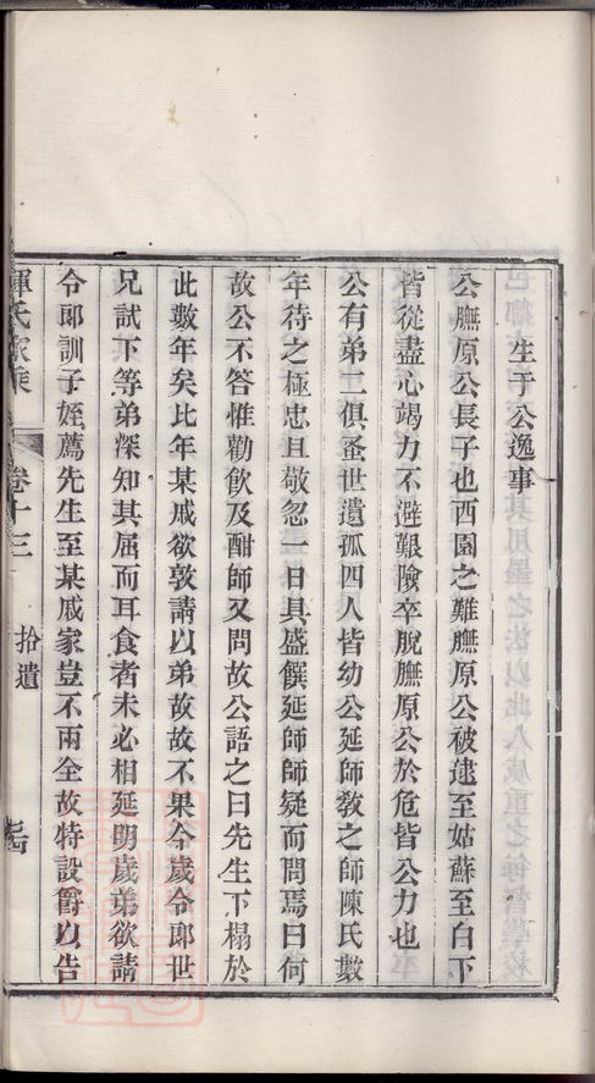 生于公逸事
公膴原公長子也西園之難膴原公被逮至姑蘇至白下
皆從盡心竭力不避艱險卒脫膴原公於危皆公力也
公有弟二俱蚤世遺孤四人皆幼公延師教之師陳氏數
年待之極忠且敬忽一日具盛饌延師師疑而問焉曰何
故公不答惟勸飲及酣師又問故公語之曰先生下榻於
此數年矣比年某戚欲敦請以弟故故不果今歲令郎世
兄試下等弟深知其屈而耳食者未必相延明歲弟欲請
令郎訓子姪薦先生至某戚家豈不兩全故特設爵以告
惲氏家乘
卷十三
拾遺